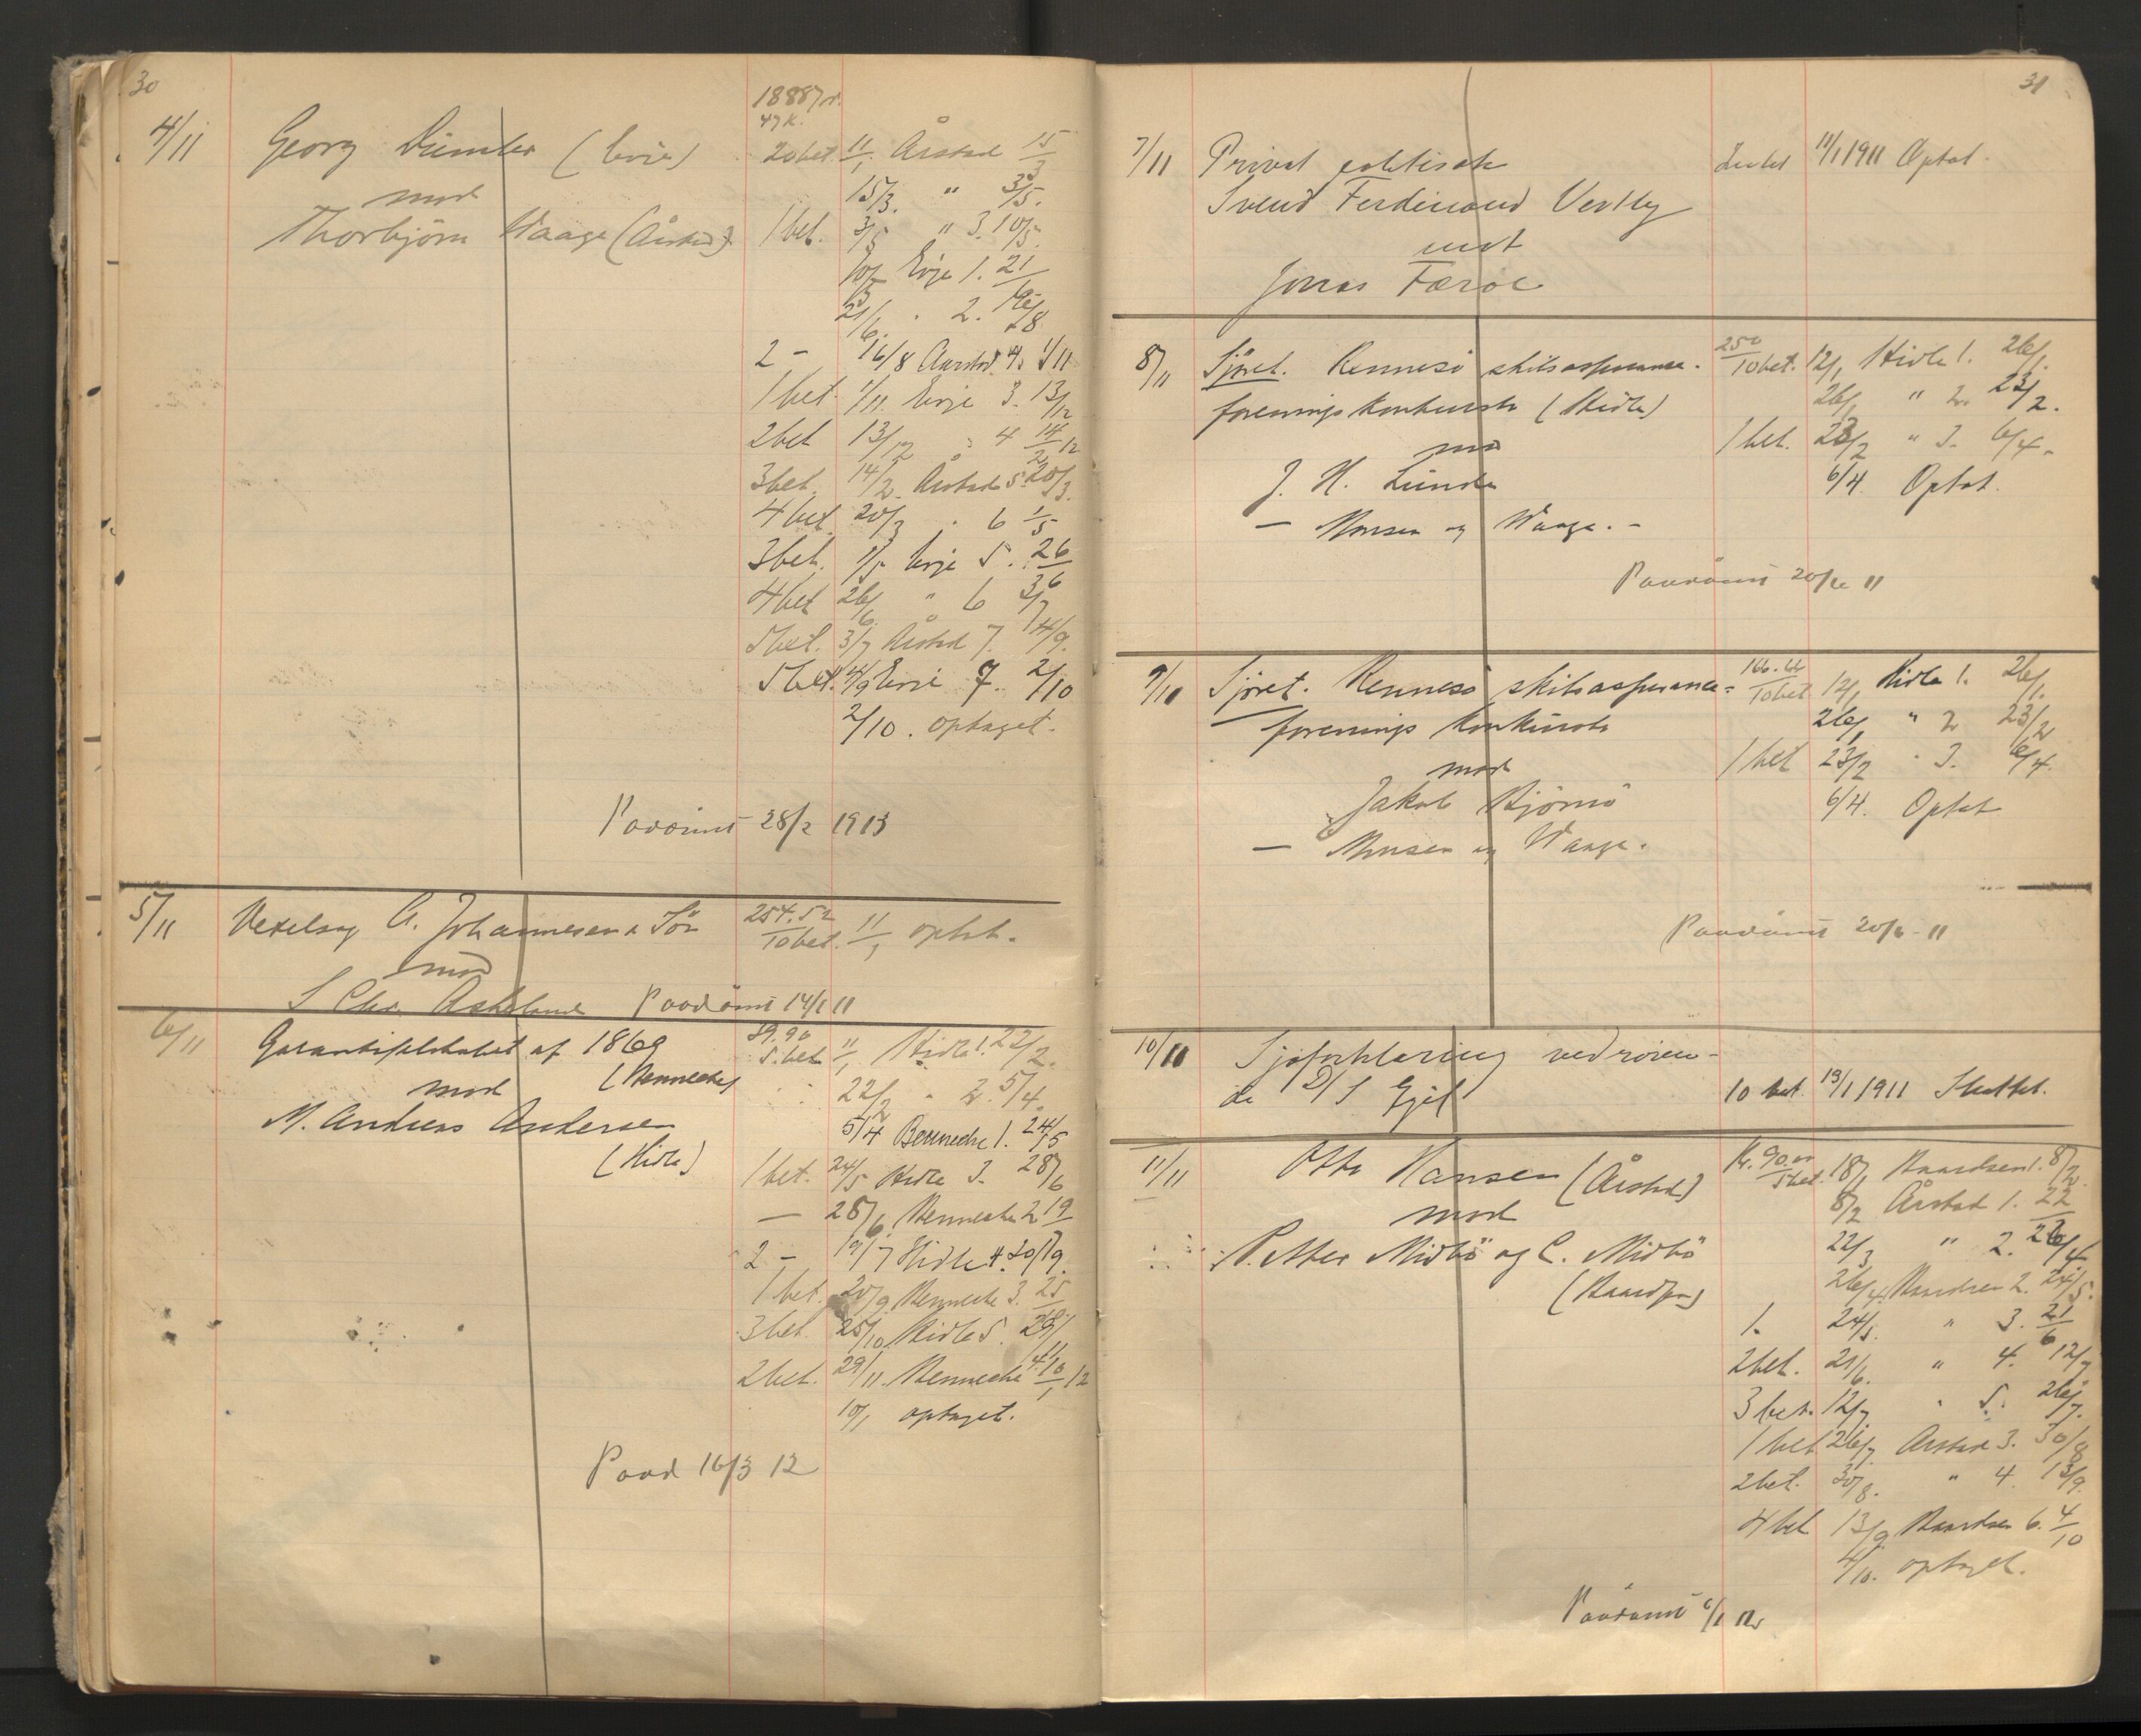 30
4/11 Georg
mod
Thorbjørn Waage (Årstad)
20 bet 11/1 Årstad 15/3
15/3. " 3/5.
1 bet. 3/5 " 3. 10/5.
10/5 Erje 1. 21/6
21/6. " 2. 16/8
2 - 16/8 Aarstad 4. 1/11
1 bet. 1/11. Erje 3. 13/12
2 bet 13/12 " 4 14/2 12
3 bet. 14/2. Årstad 5. 20/3.
4 bet 20/3 " 6 1/5
3 bet. 1/5 Erje 5. 26/6
4 bet 26/6. " 6 3/7
5 bet. 3/7 Årstad 7. 4/9.
5 bet. 4/9 Erje 7. 2/10
2/10. optaget.
Paadømt 28/2 1913
5/11 Vexelsag A. Johannesen & Sön 254.52
10 bet. 11/1 optat.
mod
S Chr. Askeland Paadömt 14/1 11
6/11 Garantiselskabet af 1869 89.90
(Bennecke) 5. bet. 11/1 Hidle 1. 22/2.
mod 22/2 " 2. 5/4.
M. Andreas Andersen 5/4 Bennecke 1. 24/5
(Hidle) 1 bet. 24/5 Hidle 3. 28/6
— 28/6 Bennecke 2 19/7
2 - 19/7 Hidle 4. 20/9.
1 bet. 20/9. Bennecke 3. 25/10
3 bet. 25/10 Hidle 5. 29/11
2 bet. 29/11. Bennecke 4. 10/1 12
10/1 optaget.
Paad 16/3 12
31
7/11 Privat politisak 11/1 1911 Optat.
Svend Ferdinand Vestly
mot
Jonas Færøe
8/11 Sjöret. Rennesö skibsassurance- 250
10 bet. 12/1 Hidle 1. 26/1.
forenings konkursbo (Hidle) 26/1 " 2. 23/2.
mod 1 bet. 23/2 " 3. 6/4.
J. H. Lunde 6/4. Optat.
— Monsen og Waage. -
Paadömt 20/6 11
9/10 Sjöret. Rennesö skibsassurance=
10 bet 12/1 Hidle 1. 26/1.
forenings konkursbo 26/1 " 2 23/2
mod 1 bet 23/2 " 3. 6/4.
Jakob Bjørnö 6/4. Optat
— Monsen og Waage.
Paadömt 20/6 - 11
10/11 Sjøforklaring vedrøren-
de D/S Egil 10 bet. 13/1 1911 Sluttet.
11/11 Otto Hansen (Årstad) Kr. 90.00
5 bet. 18/1 Baardsen 1. 8/2.
mod 8/2 Årstad 1. 22/3
P. Mitbö og C. Mitbö 22/3 " 2. 26/4
(Baardsen) 26/4. Baardsen 2. 24/5.
1. 24/5. " 3. 21/6
2 bet. 21/6. " 4. 12/7
3 bet. 12/7 " 5. 26/7.
1 bet 26/7 Årstad 3. 30/8
2 bet. 30/8. " 4. 13/9.
4 bet 13/9 Baardsen 6. 4/10
4/10. optaget.
Paadömt 6/1 12